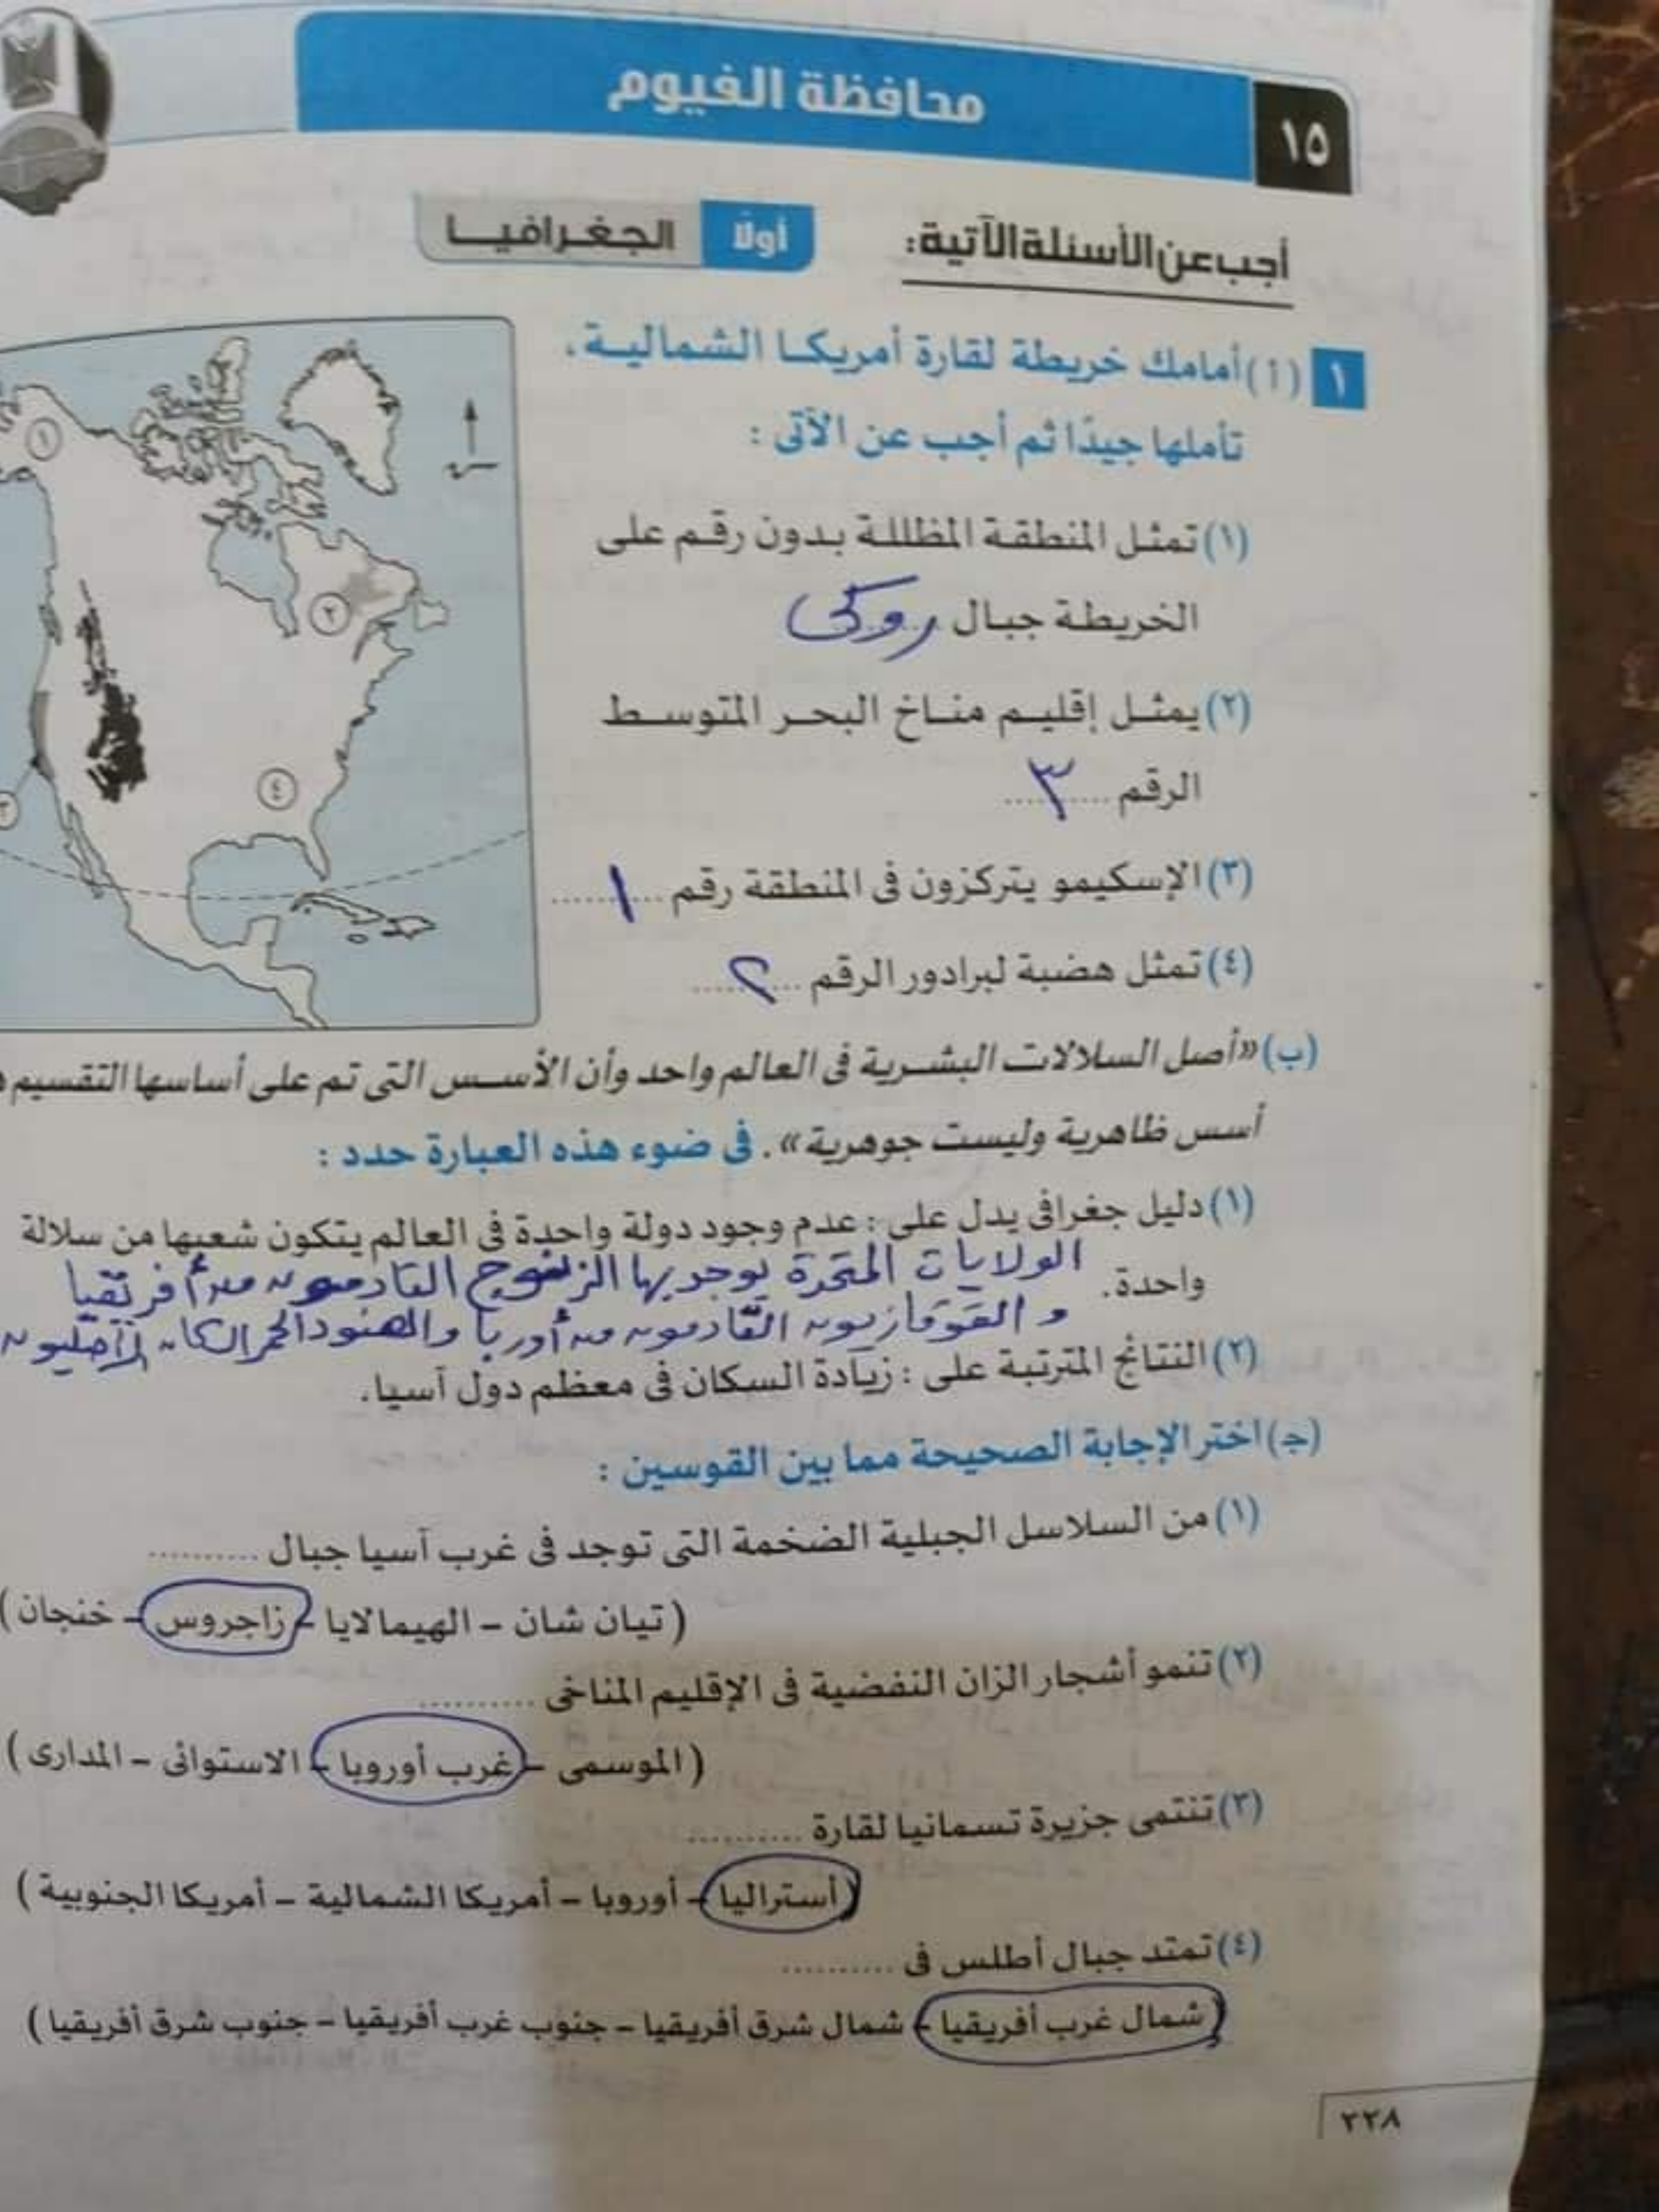 ١٥
محافظة الفيوم
أجب عن الأسئلة الآتية:
أولاً الجغرافيا
١ (أ) أمامك خريطة لقارة أمريكا الشمالية،
تأملها جيدًا ثم أجب عن الآتى :
(١) تمثل المنطقة المظللة بدون رقم على
الخريطة جبال روكى
(٢) يمثل إقليم مناخ البحر المتوسط
الرقم ..... ٣ .....
(٣) الإسكيمو يتركزون فى المنطقة رقم ..... ١ .....
(٤) تمثل هضبة لبرادور الرقم ..... ٢ .....
١
٢
٣
٤
(ب) «أصل السلالات البشرية فى العالم واحد وأن الأسس التى تم على أساسها التقسيم
أسس ظاهرية وليست جوهرية». فى ضوء هذه العبارة حدد :
(١) دليل جغرافى يدل على : عدم وجود دولة واحدة فى العالم يتكون شعبها من سلالة
واحدة. الولايات المتحدة يوجد بها الزنوج القادمون من أفريقيا
و القوقازيون القادمون من أوربا والهنود الحمر السكان الأصليون
(٢) النتائج المترتبة على : زيادة السكان فى معظم دول آسيا.
(ج) اختر الإجابة الصحيحة مما بين القوسين :
(١) من السلاسل الجبلية الضخمة التى توجد فى غرب آسيا جبال ..........
( تيان شان – الهيمالايا – زاجروس – خنجان )
(٢) تنمو أشجار الزان النفضية فى الإقليم المناخى ..........
( الموسمى – غرب أوروبا – الاستوائى – المدارى )
(٣) تنتمى جزيرة تسمانيا لقارة ..........
( أستراليا – أوروبا – أمريكا الشمالية – أمريكا الجنوبية )
(٤) تمتد جبال أطلس فى ..........
( شمال غرب أفريقيا – شمال شرق أفريقيا – جنوب غرب أفريقيا – جنوب شرق أفريقيا )
٢٢٨